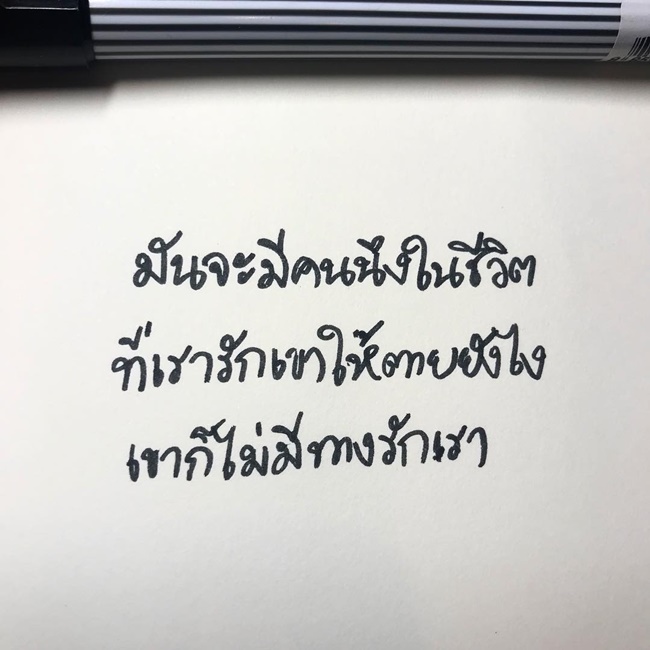 มันจะมีคนนึงในชีวิต
ที่เรารักเขาให้ตายยังไง
เขาก็ไม่มีทางรักเรา